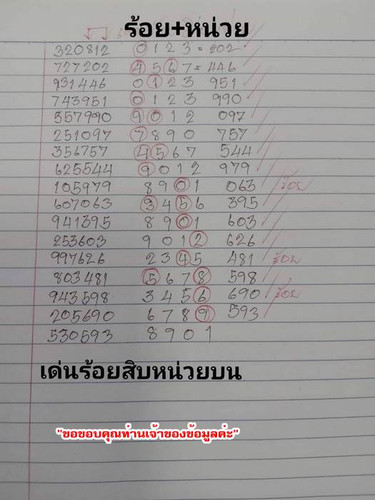 ร้อย+หน่วย
320812 0123=202
727202 4567=446
931446 0123 951
743951 0123 990
557990 9012 097
251097 7890 757
356757 4567 544
625544 9012 979
105979 8901 063 ร้อย
607063 3456 395
941395 8901 603
253603 9012 626
997626 2345 481 ร้อย
803481 5678 598
943598 3456 690 ร้อย
205690 6789 593
530593 8901
เด่นร้อยสิบหน่วยบน
"ขอขอบคุณท่านเจ้าของข้อมูลค่ะ"